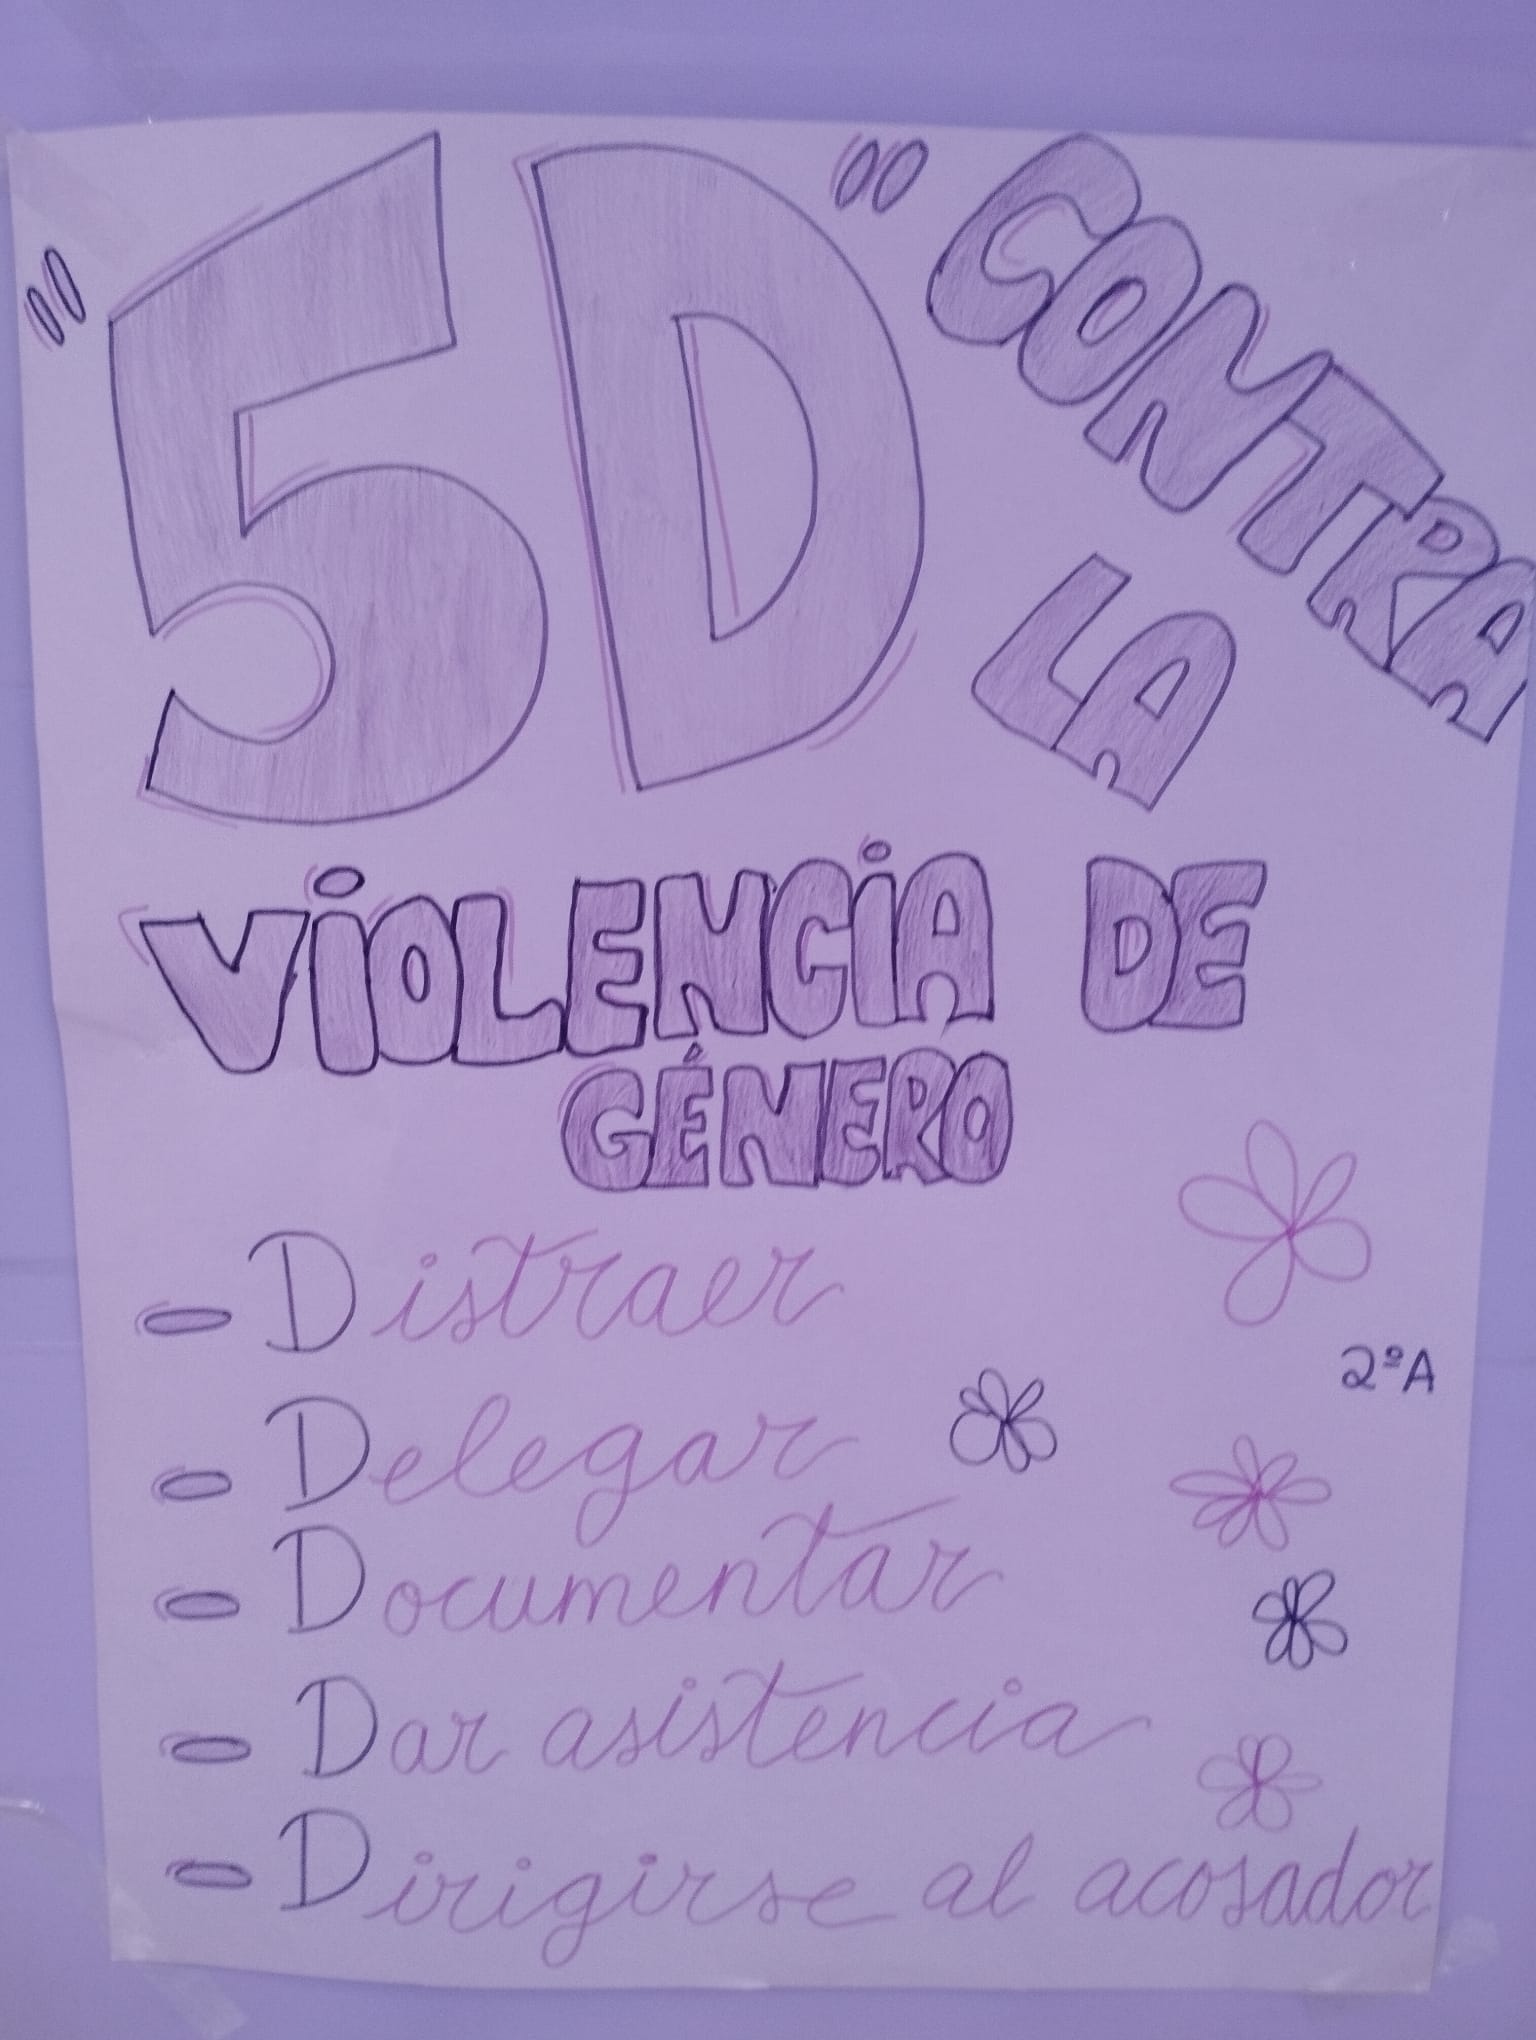 "5D" CONTRA
LA
VIOLENCIA DE
GÉNERO
- Distraer
2ºA
- Delegar
- Documentar
- Dar asistencia
- Dirigirse al acosador